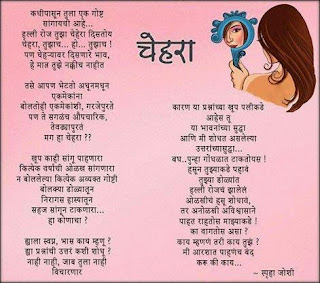 चेहरा
कधीपासून तुला एक गोष्ट
सांगायची आहे...
हुल्ली रोज तुझा चेहेरा दिसतोय
चेहरा, तुझाच... हो... तुझाच !
पण चेहऱ्यावर दिसणारे भाव,
हे मात्र तुझे नक्कीच नाहीत
तसे आपण भेटतो अधूनमधून
एकमेकांना
बोलतोही एकमेकांशी, गरजेपुरते
पण ते सगळंच औपचारिक,
तेवढ्यापुरते
मग हा चेहरा ??
खुप काही सांगू पाहणारा
कित्येक वर्षांची ओळख सांगणारा
न बोललेल्या कित्येक अव्यक्त गोष्टी
बोलक्या डोळ्यातून
निरागस हास्यातून
सहज सांगून टाकणारा...
हा कोणाचा ?
ह्याला स्वप्न, भास काय म्हणू ?
ह्या प्रश्नांची उत्तरं कशी शोधू ?
नाही नाही, जाब तुला नाही
विचारणार
कारण या प्रश्नांच्या खुप पलीकडे
आहेस तू
या भावनांच्या सुद्धा
आणि मी शोधत असलेल्या
उत्तरांच्यासुद्धा...
बघ..पुन्हा गोंधळात टाकतोयस !
हसून तुझ्याकडे पहावे
तुझ्या डोळ्यांत
हुल्ली रोजचं झालेलं
ओळखीचं हसू शोधावे,
तर अनोळखी अविश्वासाने
पाहत राहतोस माझ्याकडे !
का वागतोस असा ?
काय म्हणणं तरी काय तुझं ?
मी आरशात पाहणंच बंद
करू की काय...
~ स्पृहा जोशी